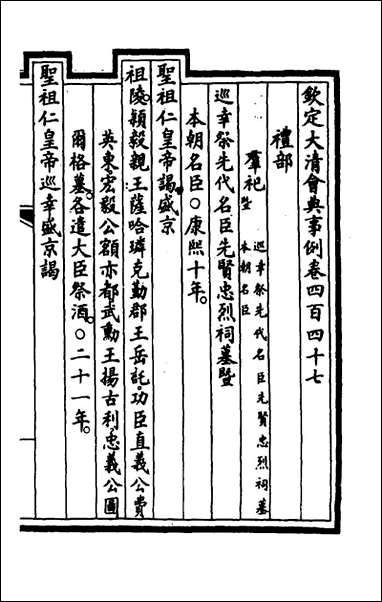 欽定大清會典事例卷四百四十七
禮部
羣祀 巡幸祭先代名臣先賢忠烈祠墓暨本朝名臣
巡幸祭先代名臣先賢忠烈祠墓暨
本朝名臣○康熙十年。
聖祖仁皇帝謁盛京
祖陵。穎毅親王薩哈璘克勤郡王岳託。功臣直義公費
英東。宏毅公額亦都武勳王揚古利。忠義公圖
爾格墓。各遣大臣祭酒。○二十一年。
聖祖仁皇帝巡幸盛京謁